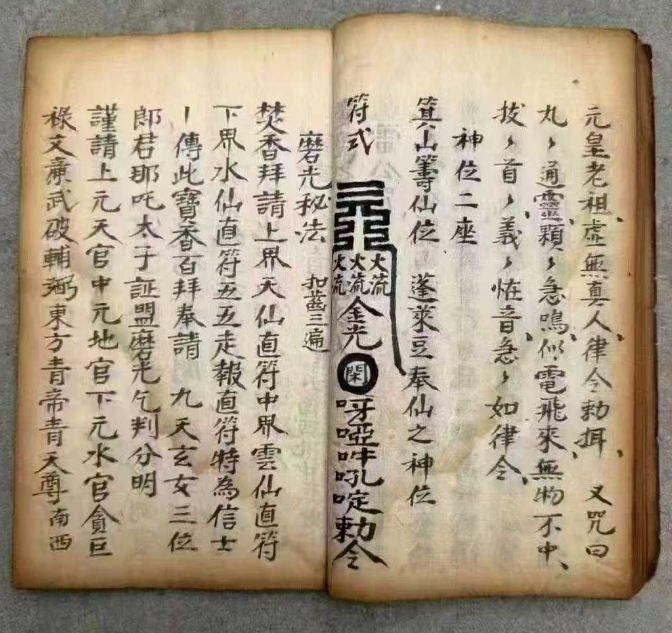 元皇老祖虛無真人律令勅搤 又咒曰
丸〻通靈顆〻急鳴似電飛來無物不中
拔〻首〻義〻恠音急〻如律令
神位二座
箕山籌仙位 蓬萊豆奉仙之神位
符式
火流 火流 火流
金光
閑
呀啞吽吼啶勅令
磨光秘法 扣齒三遍
焚香拜請上界天仙直符中界雲仙直符
下界水仙直符五五走報直符特為信士
傳此寶香百拜奉請 九天玄女三位
郎君耶吒太子証盟磨光乞判分明
謹請上元天官中元地官下元水官貪巨
祿文亷武破輔弼東方青帝青天尊南西